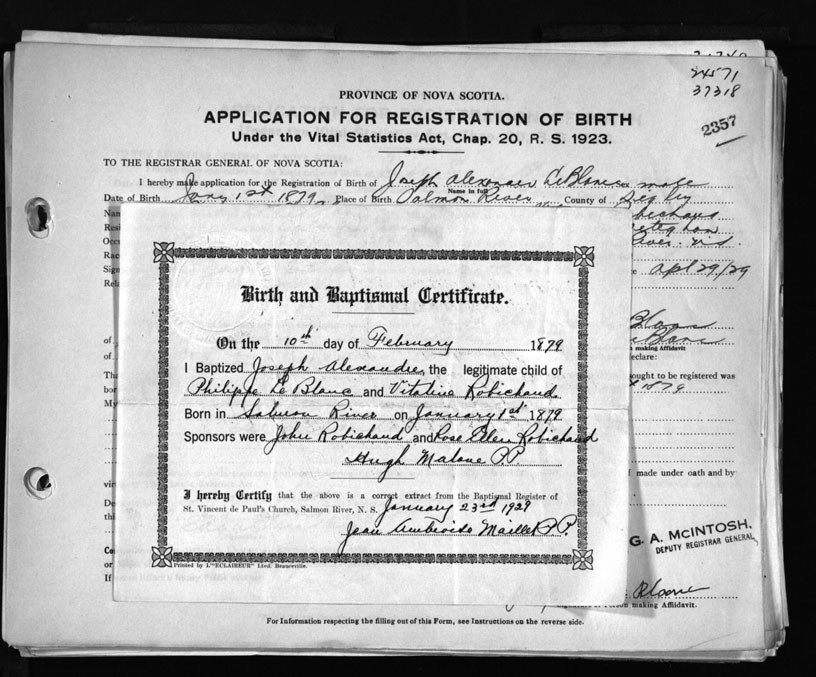 24571
37318
2357
PROVINCE OF NOVA SCOTIA.
APPLICATION FOR REGISTRATION OF BIRTH
Under the Vital Statistics Act, Chap. 20, R. S. 1923.
TO THE REGISTRAR GENERAL OF NOVA SCOTIA:
I hereby make application for the Registration of Birth of Joseph Alexander LeBlanc sex male
Name in full
Date of Birth Jan'y 1st 1879, Place of Birth Salmon River County of Digby
Apl 29/29
making Affidavit
declare:
ought to be registered was
1879
made under oath and by
Birth and Baptismal Certificate.
On the 10th day of February 1879
I Baptized Joseph Alexandre, the legitimate child of
Philippe Le Blanc and Vitaline Robichaud
Born in Salmon River on January 1st 1879
Sponsors were John Robichaud and Rose Ellen Robichaud
Hugh Malone P.P.
I hereby Certify that the above is a correct extract from the Baptismal Register of
St. Vincent de Paul's Church, Salmon River, N. S. January 23rd 1929
Jean Maillet P.P.
Printed by L'"ECLAIREUR" Ltee. Beauceville.
G. A. McINTOSH,
DEPUTY REGISTRAR GENERAL
Person making Affidavit.
For Information respecting the filling out of this Form, see Instructions on the reverse side.